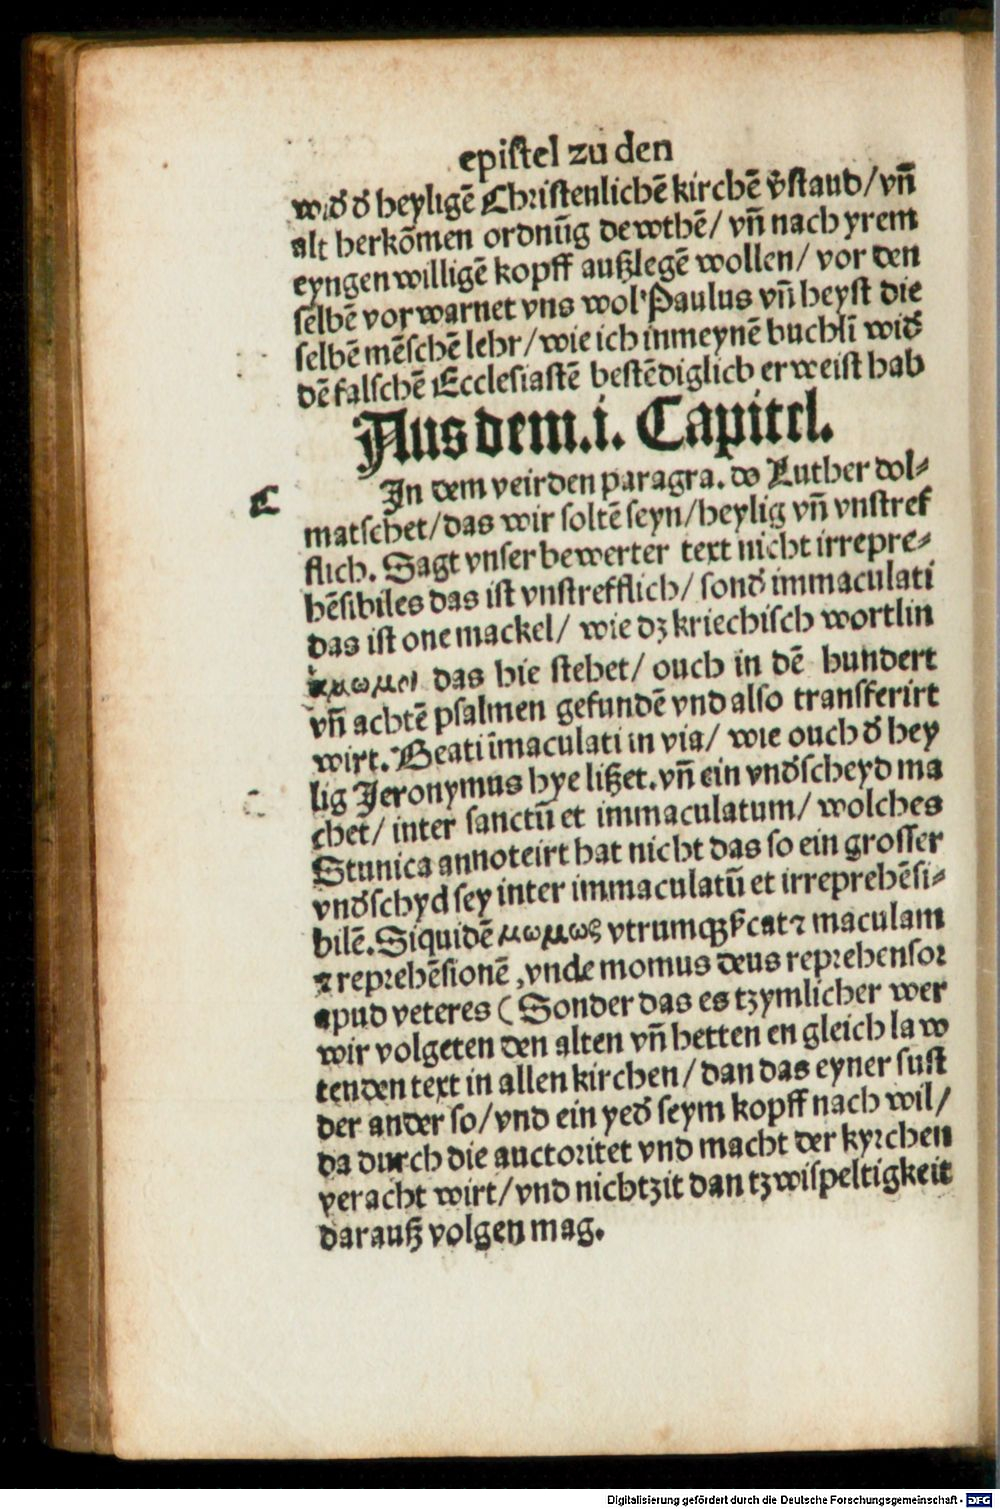 epistel zu den
wid̄ d̄ heyligē Christenlichē kirchē v̄staud/ vn̄
alt herkōmen ordnūg dewthē/ vn̄ nach yrem
eyngen willigē kopff außlegē wollen/ vor den
selbē vorwarnet vns wol Paulus vn̄ heyst die
selbē mēschē lehr/ wie ich in meynē buchlī wid̄
dē falschē Ecclesiastē bestēdiglich erweist hab
Aus dem .i. Capitel.
C In dem veirden paragra. do Luther dol⸗
matschet/ das wir soltē seyn/ heylig vn̄ vnstref
flich. Sagt vnser bewerter text nicht irrepre⸗
hēsibiles das ist vnstrefflich/ sond̄ immaculati
das ist one mackel/ wie dz kriechisch wortlin
ἄμωμοι das hie stehet/ ouch in dē hundert
vn̄ achtē psalmen gefundē vnd also transferirt
wirt. Beati īmaculati in via/ wie ouch d̄ hey
lig Jeronymus hye lißet. vn̄ ein vnd̄scheyd ma
chet/ inter sanctū et immaculatum/ wolches
Stunica annoteirt hat nicht das so ein grosser
vnd̄schyd sey inter immaculatū et irreprehēsi⸗
bilē. Siquidē μωμως vtrumqꝫ ſ̄cat ⁊ maculam
⁊ reprehēsionē, vnde momus deus reprehensor
apud veteres ( Sonder das es tzymlicher wer
wir volgeten den alten vn̄ hetten en gleich law
tenden text in allen kirchen/ dan das eyner sust
der ander so/ vnd ein yed̄ seym kopff nach wil/
da durch die auctoritet vnd macht der kyrchen
veracht wirt/ vnd nichtzit dan tzwispeltigkeit
darauß volgen mag.
Digitalisierung gefördert durch die Deutsche Forschungsgemeinschaft - DFG